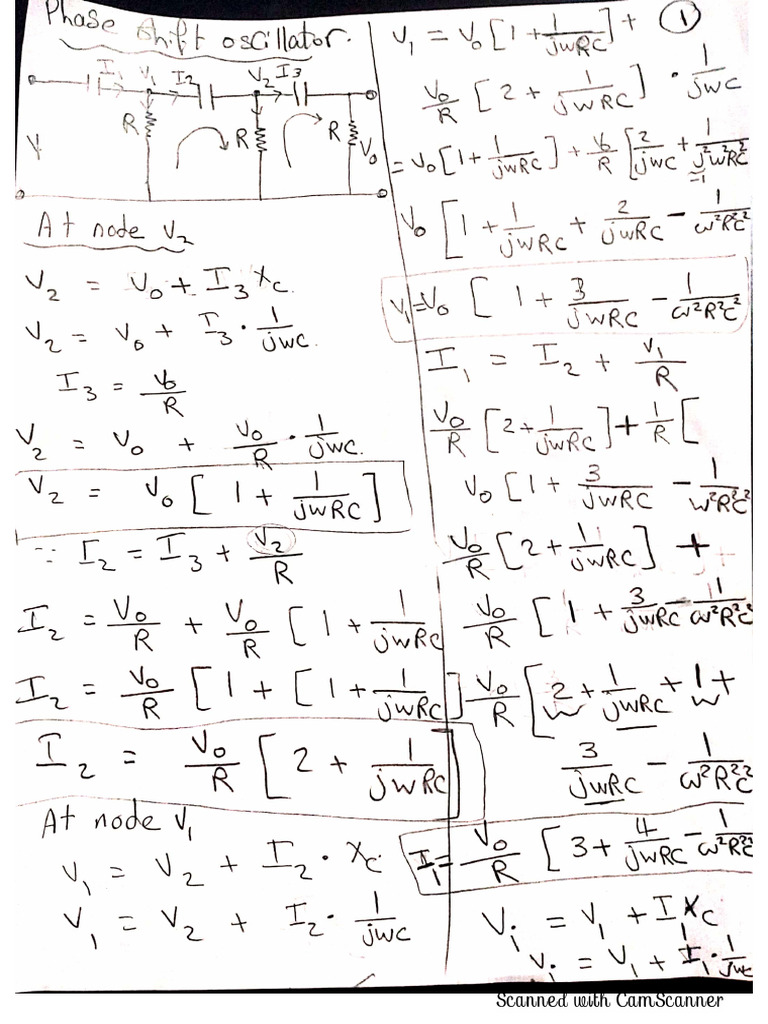 Phase shift oscillator.
I1 V1 I2 V2 I3
R R R V0
V
At node V2
V2 = V0 + I3 Xc.
V2 = V0 + I3 · 1/jwc.
I3 = V0/R
V2 = V0 + V0/R · 1/jwc.
V2 = V0 [ 1 + 1/jwRC ]
∵ I2 = I3 + V2/R
I2 = V0/R + V0/R [ 1 + 1/jwRC
I2 = V0/R [ 1 + [ 1 + 1/jwRC ]
I2 = V0/R [ 2 + 1/jwRC ]
At node V1
V1 = V2 + I2 · Xc
V1 = V2 + I2 · 1/jwc
①
V1 = V0 [ 1 + 1/jwRC ] +
V0/R [ 2 + 1/jwRC ] · 1/jwc
= V0 [ 1 + 1/jwRC ] + V0/R [ 2/jwc + 1/j²w²RC²
=1
V0 [ 1 + 1/jwRC + 2/jwRC − 1/w²R²C²
V1 = V0 [ 1 + 3/jwRC − 1/w²R²C²
I1 = I2 + V1/R
V0/R [ 2 + 1/jwRC ] + 1/R [
V0 [ 1 + 3/jwRC − 1/w²R²C²
V0/R [ 2 + 1/jwRC ] +
V0/R [ 1 + 3/jwRC − 1/w²R²C²
V0/R [ 2 + 1/jwRC + 1 +
3/jwRC − 1/w²R²C²
I1 = V0/R [ 3 + 4/jwRC − 1/w²R²C²
Vi = V1 + I1 Xc
Vi = V1 + I1 · 1/jwc
Scanned with CamScanner